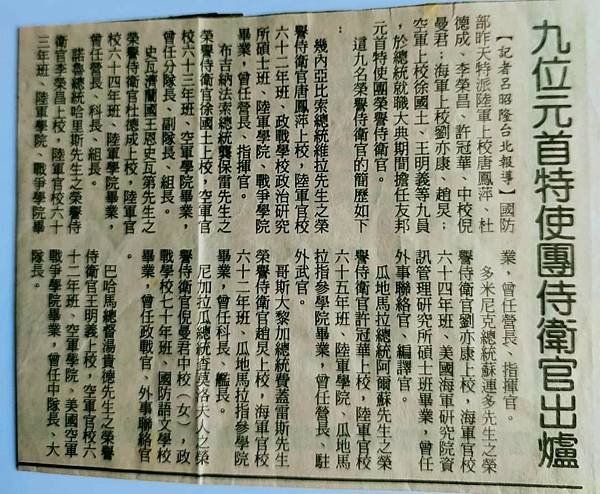 九位元首特使團侍衛官出爐
【記者呂昭隆台北報導】國防
部昨天特派陸軍上校唐鳳萍、杜
德成、李榮昌、許冠華、中校倪
曼君；海軍上校劉亦康、趙炅；
空軍上校徐國士、王明義等九員
，於總統就職大典期間擔任友邦
元首特使團榮譽侍衛官。
這九名榮譽侍衛官的簡歷如下
：
幾內亞比索總統維拉先生之榮
譽侍衛官唐鳳萍上校，陸軍官校
六十二年班、政戰學校政治研究
所碩士班、陸軍學院、戰爭學院
畢業，曾任營長、指揮官。
布吉納法索總統龔保雷先生之
榮譽侍衛官徐國士上校，空軍官
校六十三年班、空軍學院畢業，
曾任分隊長、副隊長、組長。
史瓦濟蘭國王恩史瓦第先生之
榮譽侍衛官杜德成上校，陸軍官
校六十四年班、陸軍學院畢業，
曾任營長、科長、組長。
諾魯總統哈里斯先生之榮譽侍
衛官李榮昌上校，陸軍官校六十
三年班、陸軍學院、戰爭學院畢
業，曾任營長、指揮官。
多米尼克總統蘇連多先生之榮
譽侍衛官劉亦康上校，海軍官校
六十四年班、美國海軍研究院資
訊管理研究所碩士班畢業，曾任
外事聯絡官、編譯官。
瓜地馬拉總統阿爾蘇先生之榮
譽侍衛官許冠華上校，陸軍官校
六十五年班、陸軍學院、瓜地馬
拉指參學院畢業，曾任營長、駐
外武官。
哥斯大黎加總統費蓋雷斯先生
榮譽侍衛官趙炅上校，海軍官校
六十二年班、瓜地馬拉指參學院
畢業，曾任科長、艦長。
尼加拉瓜總統查莫洛夫人之榮
譽侍衛官倪曼君中校（女），政
戰學校七十年班、國防語文學校
畢業，曾任政戰官、外事聯絡官
。
巴哈馬總督湯貴德先生之榮譽
侍衛官王明義上校，空軍官校六
十二年班、空軍學院、美國空軍
戰爭學院畢業，曾任中隊長、大
隊長。